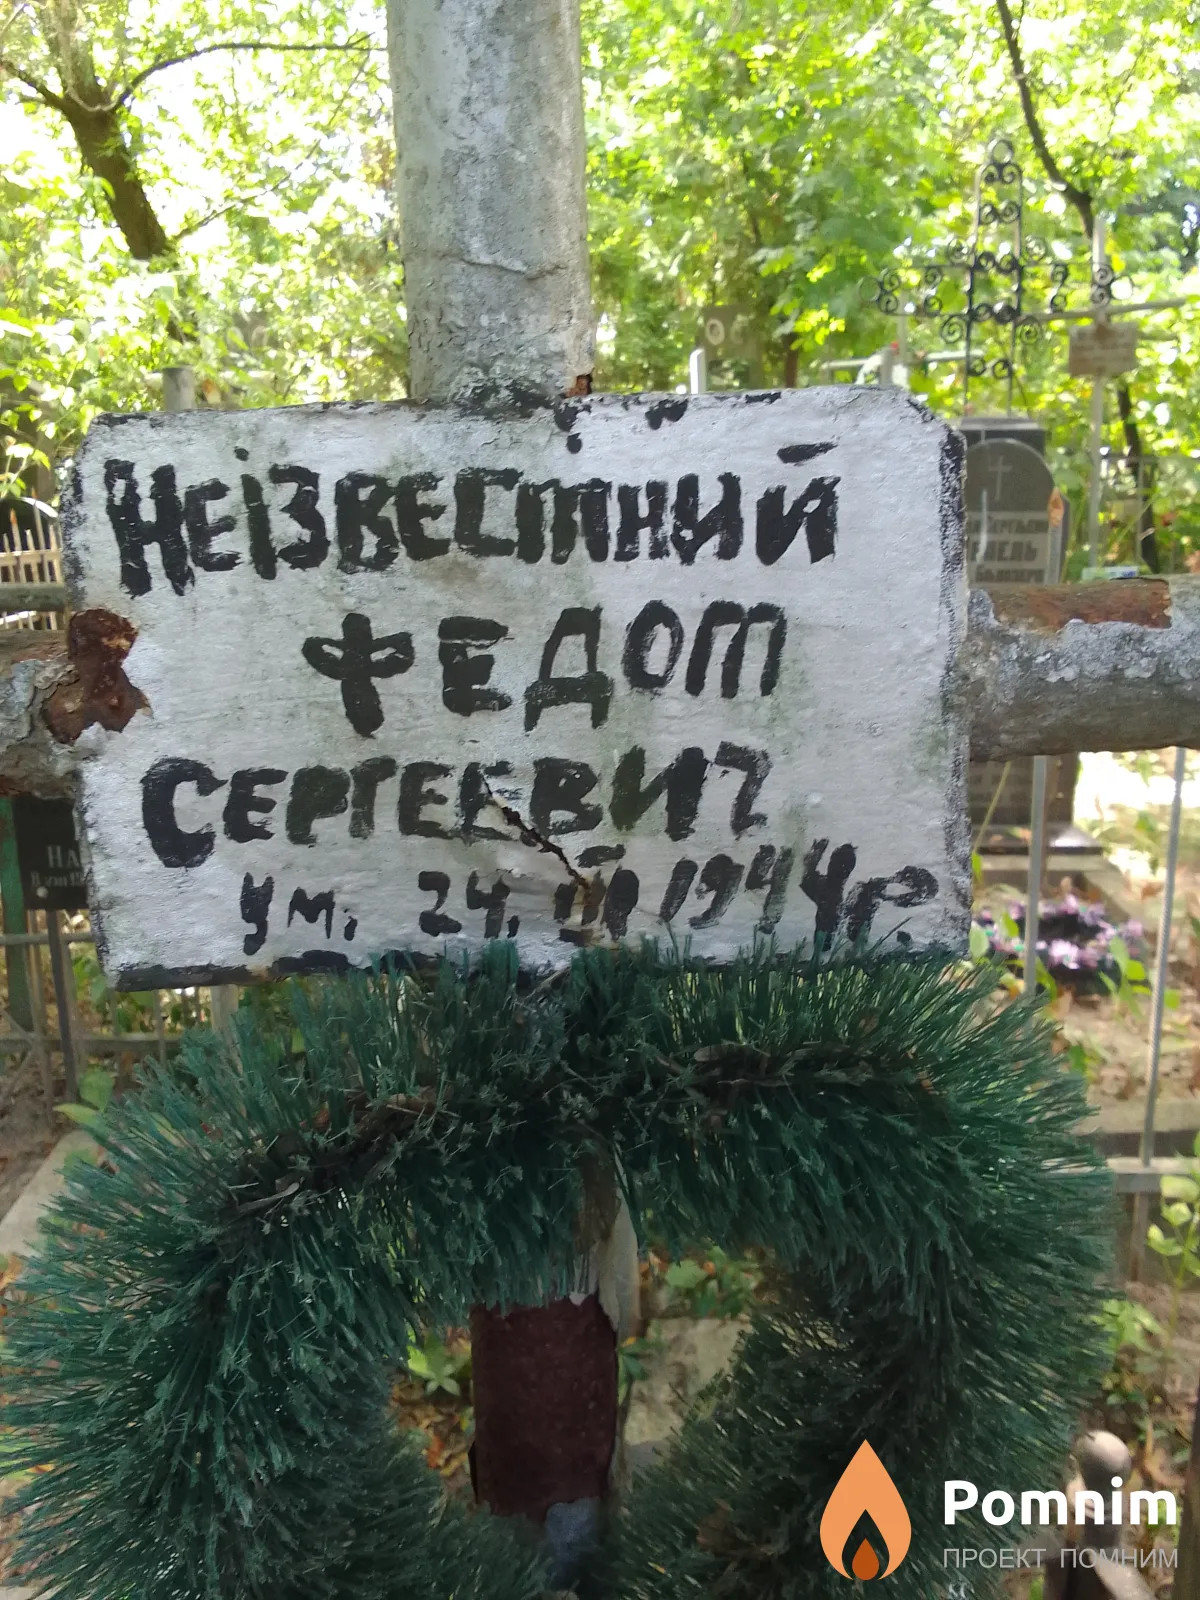 Неізвестний
Федот
Сергеевич
ум. 24. III 1944г.
НА
Pomnim
ПРОЕКТ ПОМНИМ